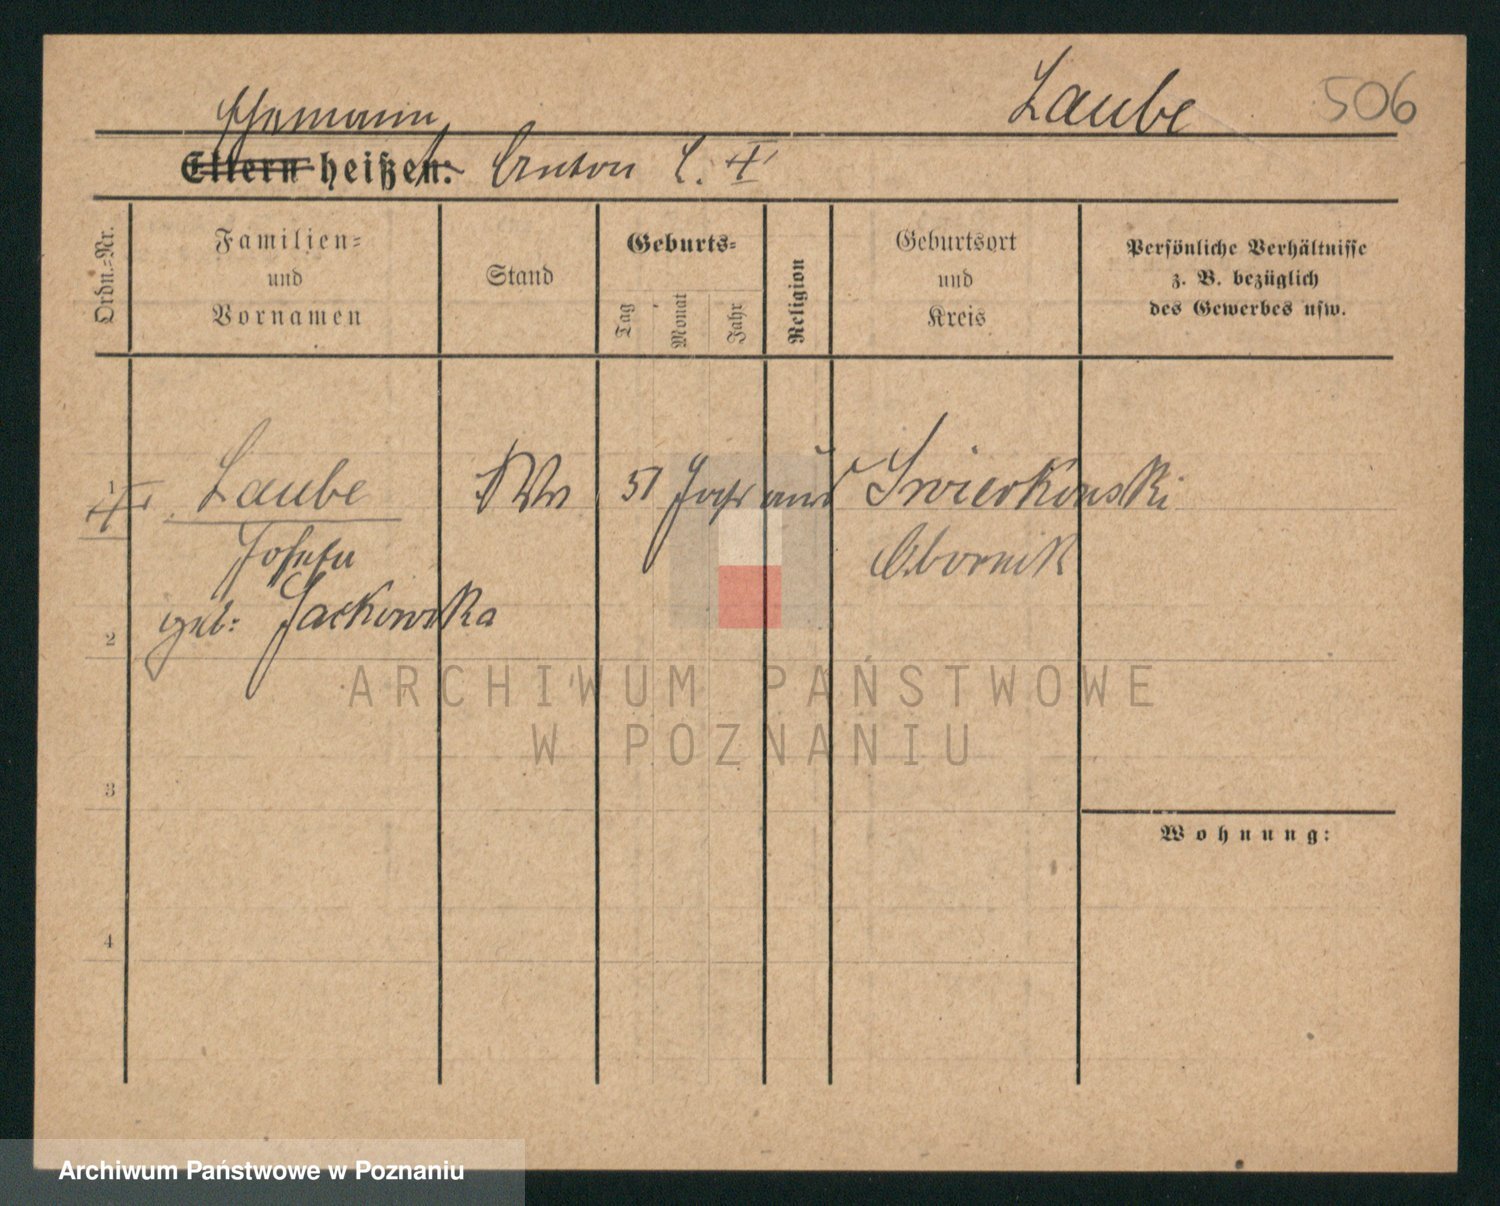 Laube 506
Ehemann
Eltern heißen: Anton L. ‡
Ordn.-Nr.
Familien-
und
Vornamen
Stand
Geburts-
Tag
Monat
Jahr
Religion
Geburtsort
und
Kreis
Persönliche Verhältnisse
z. B. bezüglich
des Gewerbes usw.
1 Laube Ww 51 Jahr aus Swierkowski
Josefa Obornik
2 geb: Jackowska
ARCHIWUM PAŃSTWOWE
W POZNANIU
3
Wohnung:
4
Archiwum Państwowe w Poznaniu